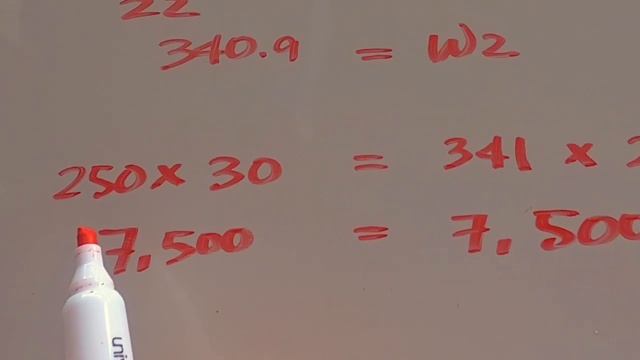 22
340.9 = W2
250 x 30 = 341 x 2
7,500 = 7,500
uni